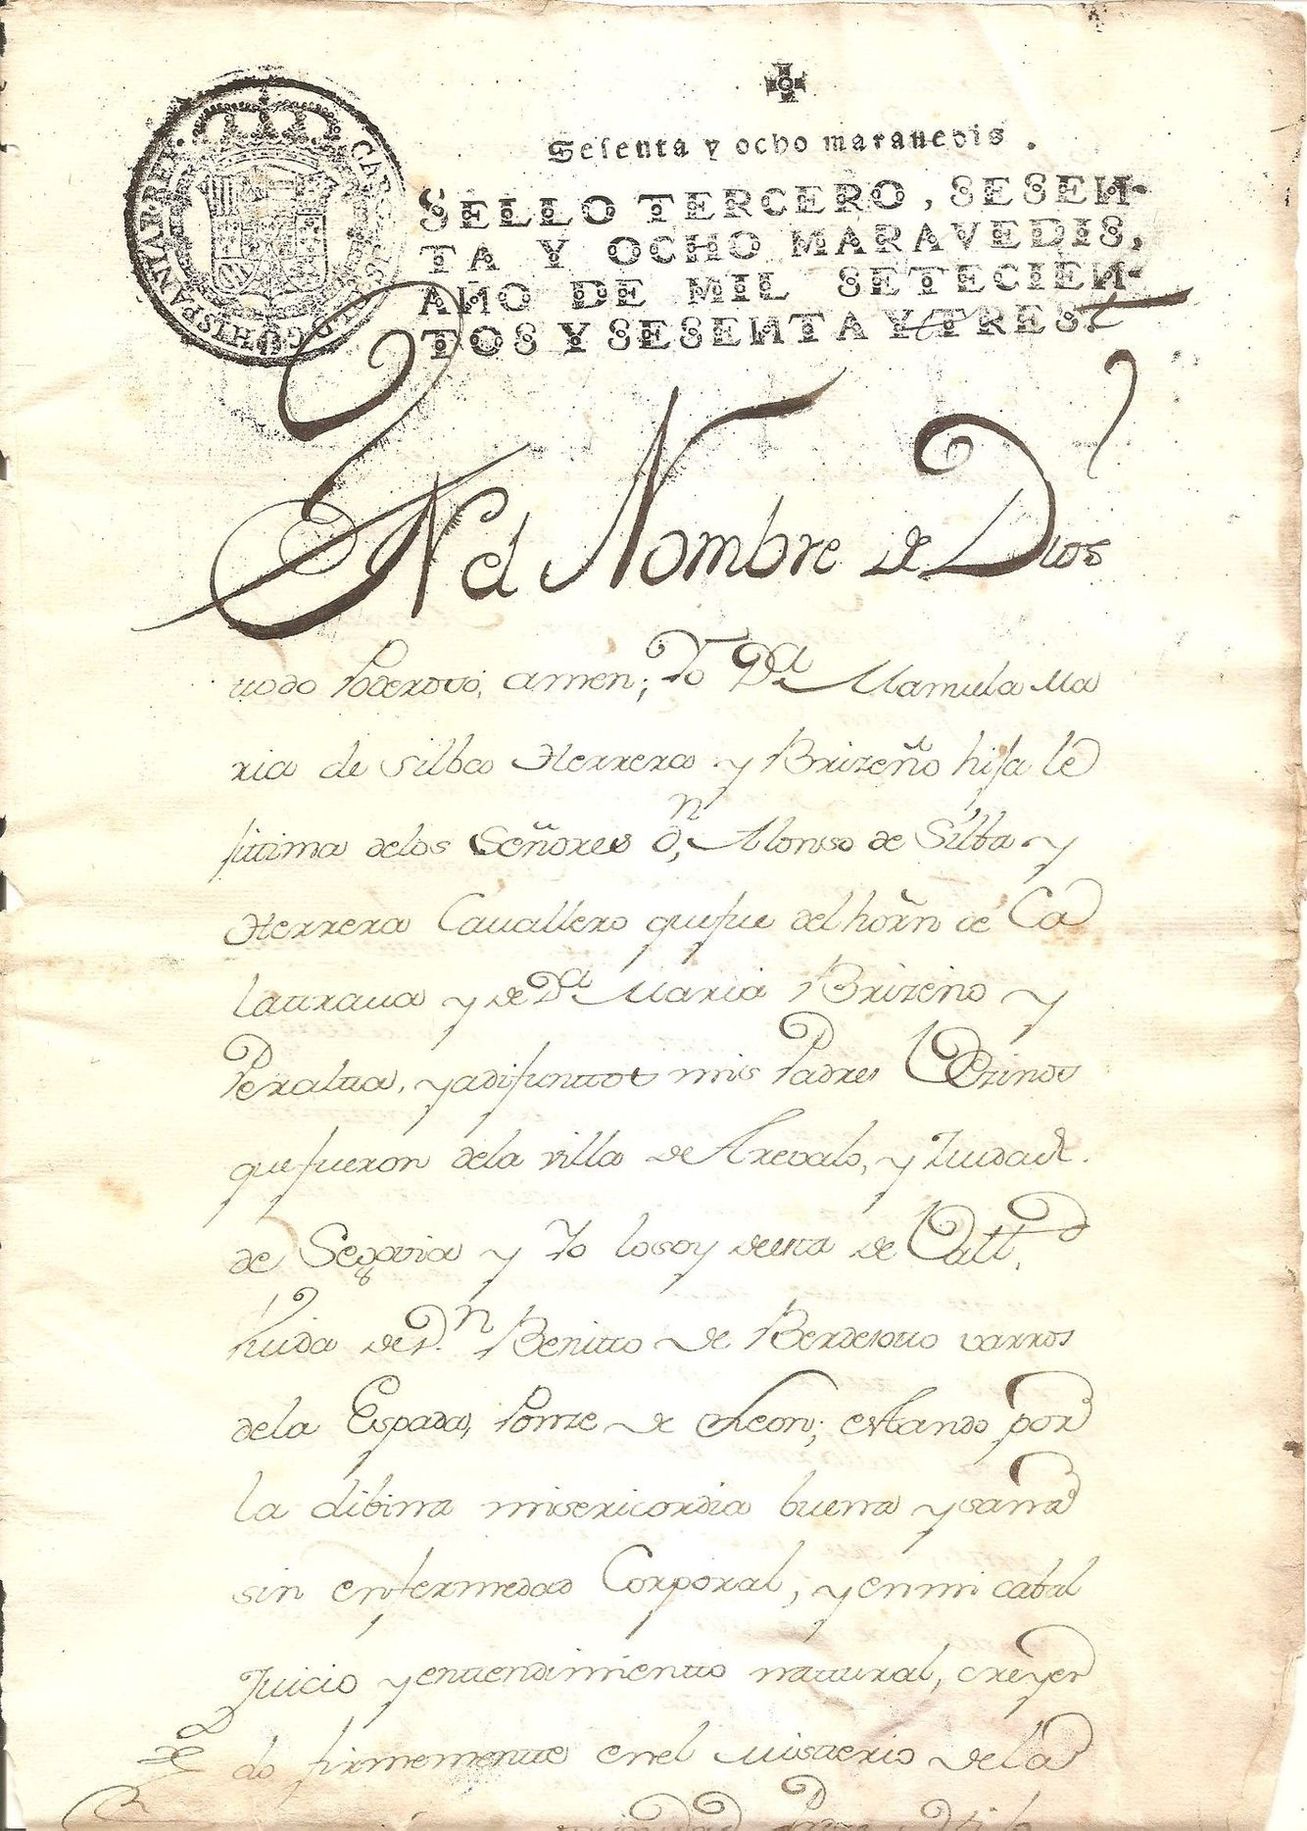 Sesenta y ocho maravedis.
SELLO TERCERO, SESEN-
TA Y OCHO MARAVEDIS,
AÑO DE MIL SETECIEN-
TOS Y SESENTA Y TRES.
HISPANIAR·REX·
EN el Nombre de Dios
todo Poderoso, amen; Yo Dª Manuela Ma
ria de Silba Herrera y Brizeño hija le
jitima delos Señores Dn, Alonso de Silba y
Herrera Cavallero que fue del horñ de Ca
latrava y de Dª Maria Brizeño y
Peralta, ya difunttos mis Padres Vezinos
que fueron dela villa de Arevalo, y Ziudad.
de Segovia y Yo lo soy de esta de Vallid,
Viuda de Dn. Benitto de Berdesotto varros
dela Espada, Ponze de Leon; estando por
la dibina misericordia buena y sana
sin enfermedad Corporal, y en mi cabal
Juicio y entendimientto natural, creyen
do firmemente en el Misterio de la